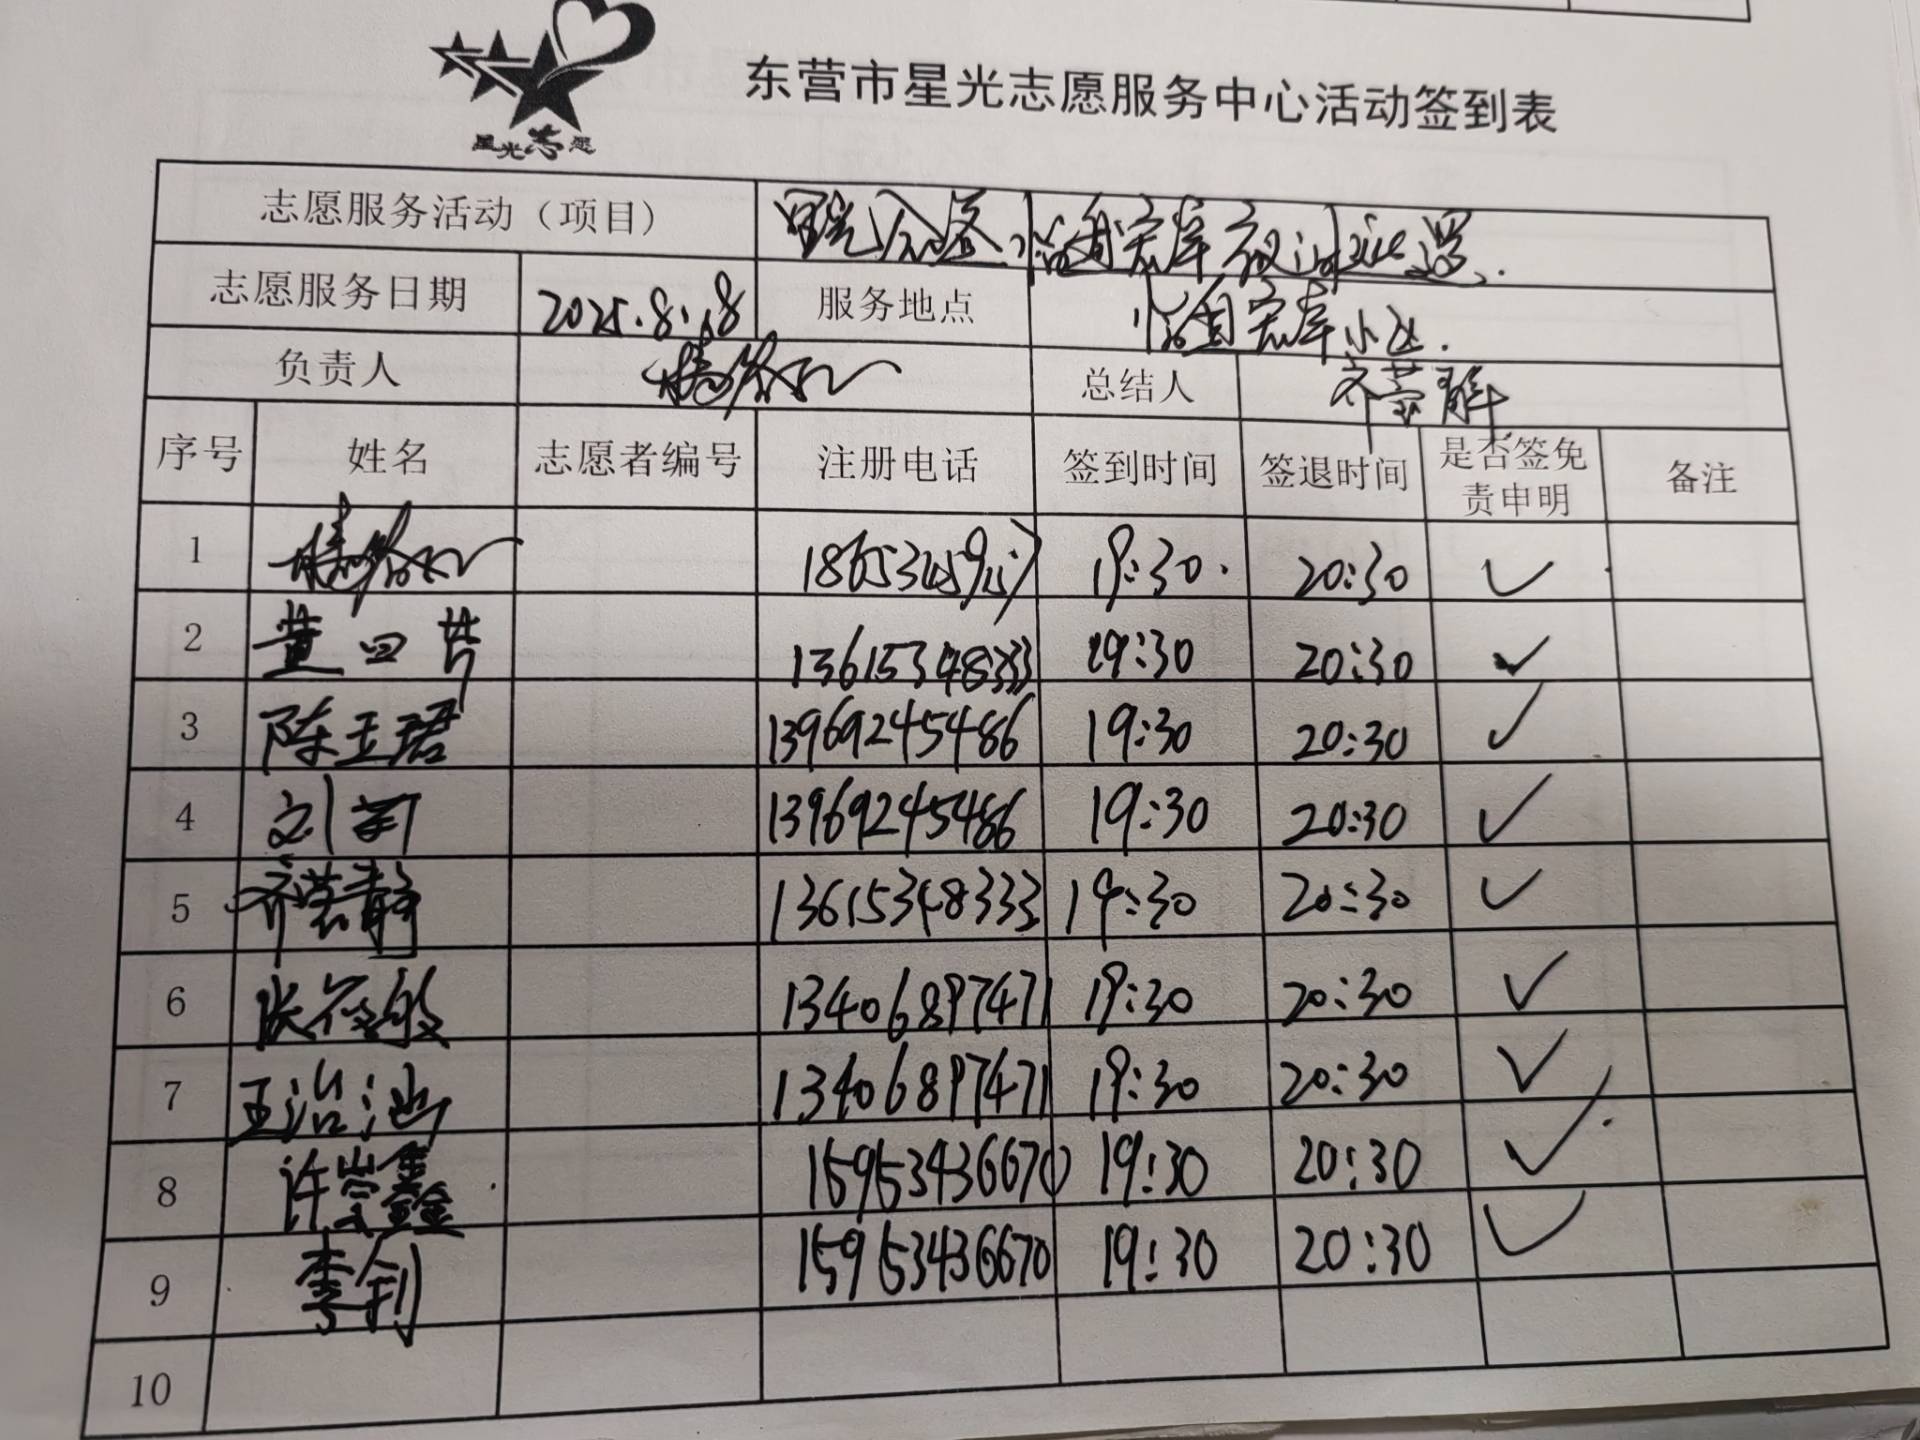 东营市星光志愿服务中心活动签到表
星光志愿
志愿服务活动（项目）
志愿服务日期 2025.8.18 服务地点 小区.
负责人 总结人
序号 姓名 志愿者编号 注册电话 签到时间 签退时间 是否签免责申明 备注
1 19:30. 20:30 ✓
2 董四芹 13615348333 19:30 20:30 ✓
3 陈玉珺 13969245486 19:30 20:30 ✓
4 刘莉 13969245486 19:30 20:30 ✓
5 13615348333 19:30 20:30 ✓
6 13406897471 19:30 20:30 ✓
7 王治 13406897471 19:30 20:30 ✓
8 许崇鑫 15953436670 19:30 20:30 ✓
9 李钊 15953436670 19:30 20:30 ✓
10